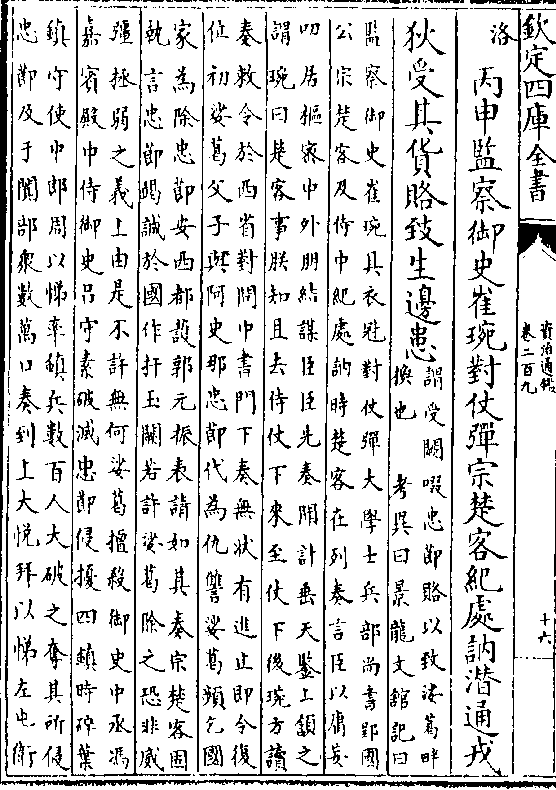 欽定四庫全書
資治通鑑
卷二百九
十六
洛
丙申監察御史崔琬對仗彈宗楚客紀處訥潛通戎
狄受其貨賂致生邊患
謂受闕啜忠節賂以致娑葛畔
換也　考異曰景龍文館記曰
監察御史崔琬具衣冠對仗彈大學士兵部尚書郢國
公宗楚客及侍中紀處訥時楚客在列奏言臣以庸妄
叨居樞密中外朋結謀臣臣先奏聞計垂天鑒上頷之
謂琬曰楚客事朕知且去待仗下來至仗下後琬方讀
奏敕令於西省對問中書門下奏無狀有進止即令復
位初娑葛父子與阿史那忠節代為仇讐娑葛頻乞國
家為除忠節安西都護郭元振表請如其奏宗楚客固
執言忠節竭誠於國作扞玉關若許娑葛除之恐非威
彊拯弱之義上由是不許無何娑葛擅殺御史中丞馮
嘉賓殿中侍御史呂守素破滅忠節侵擾四鎮時碎葉
鎮守使中郎周以悌率鎮兵數百人大破之奪其所侵
忠節及于闐部衆數萬口奏到上大悅拜以悌左屯衛